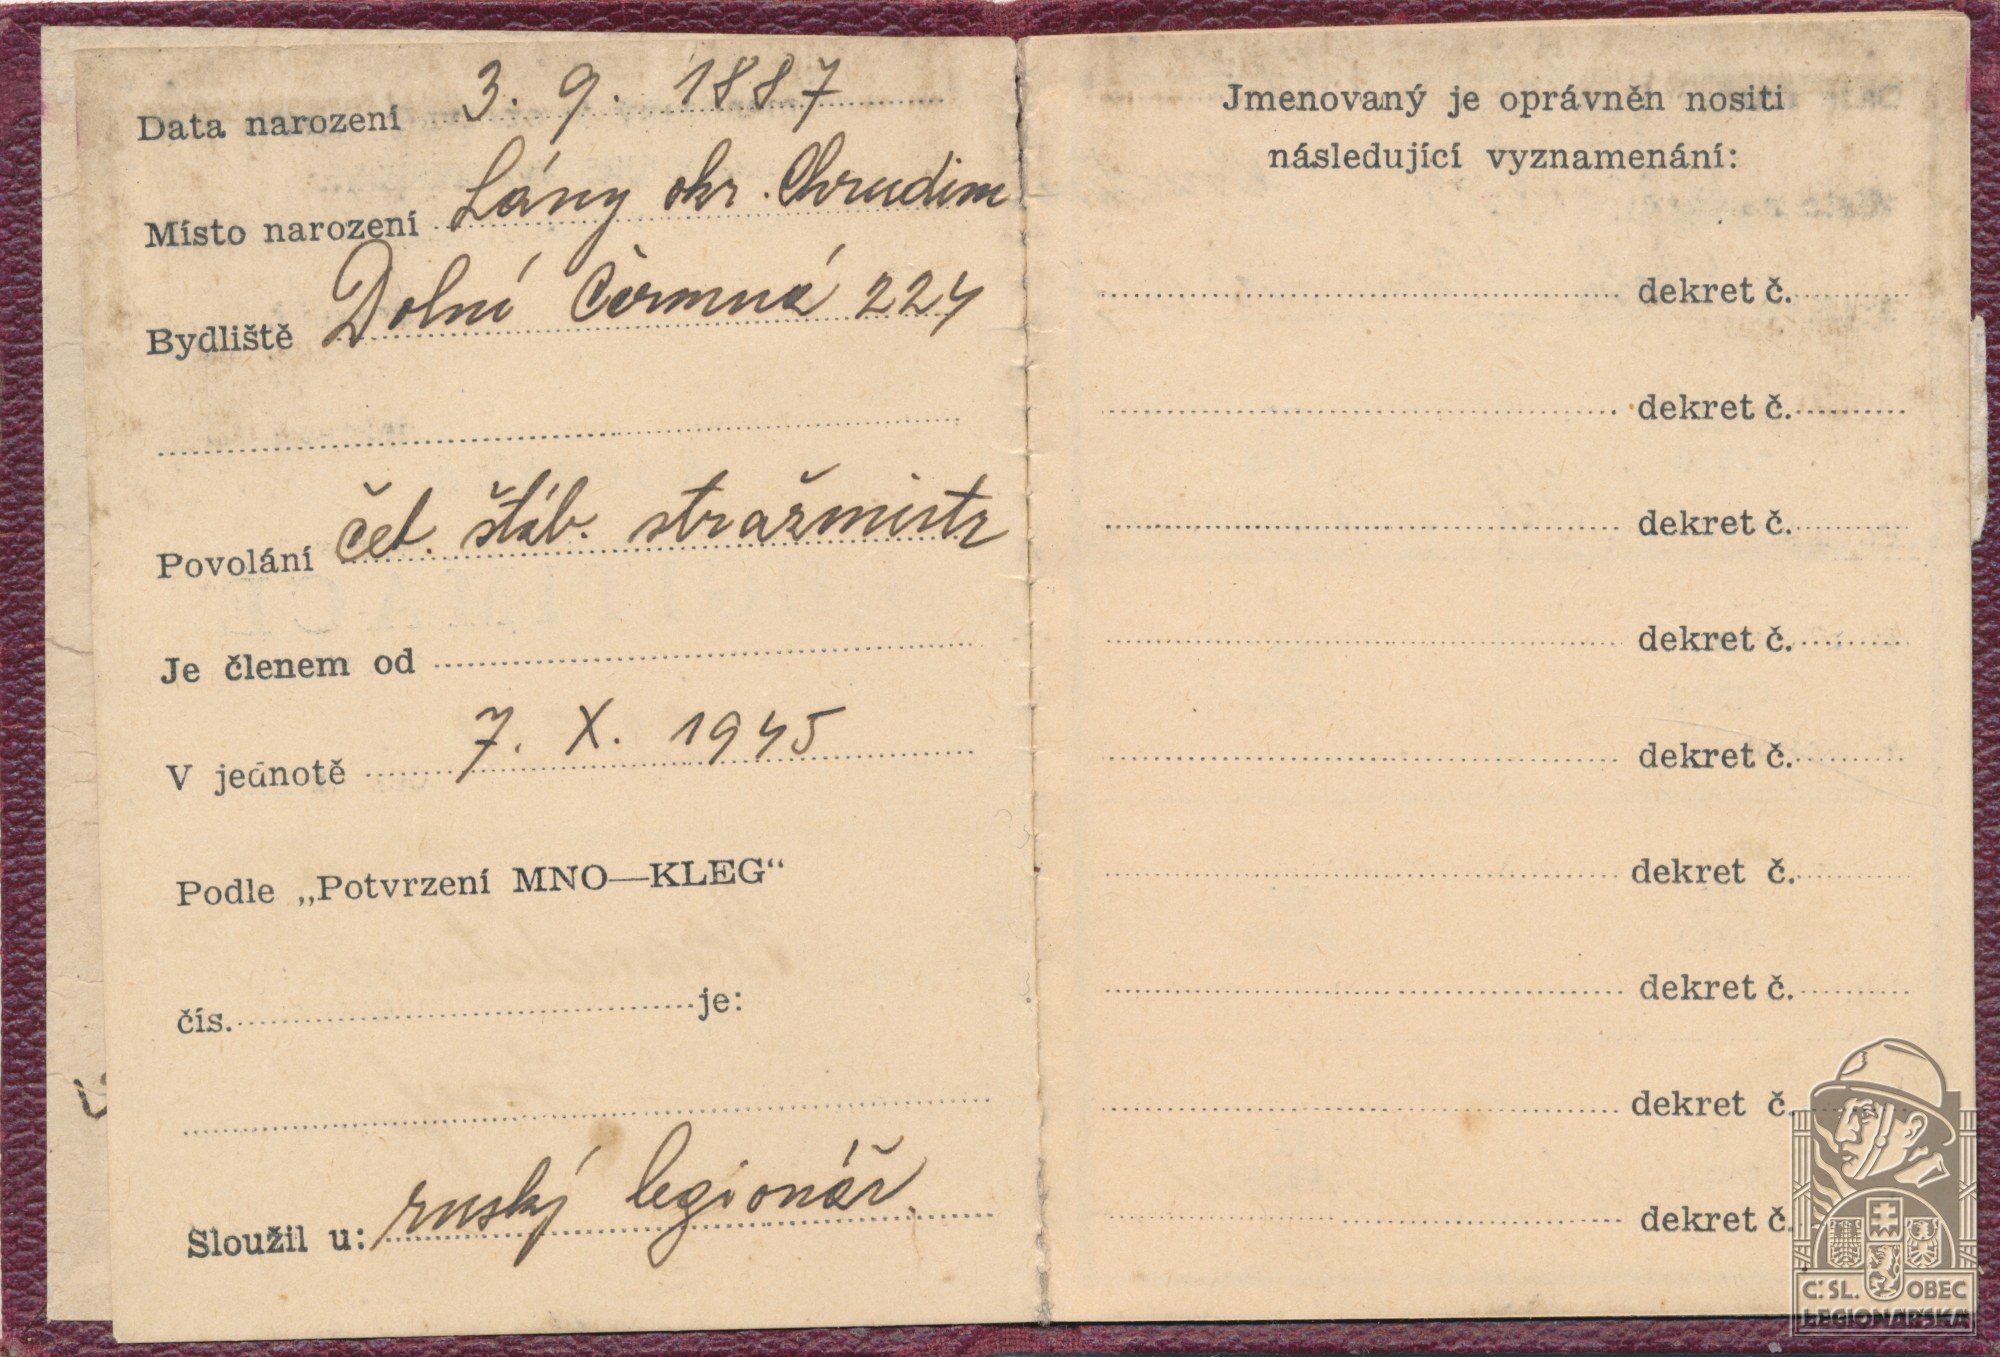 Data narození 3. 9. 1887
Místo narození Lány okr. Chrudim
Bydliště Dolní Čermná 224
Povolání čet. štáb. stražmistr
Je členem od
V jednotě 7. X. 1945
Podle „Potvrzení MNO—KLEG“
čís. je:
Sloužil u: ruský legionář.
Jmenovaný je oprávněn nositi
následující vyznamenání:
dekret č.
dekret č.
dekret č.
dekret č.
dekret č.
dekret č.
dekret č.
dekret č.
dekret č.
Č.SL. OBEC
LEGIONÁŘSKÁ